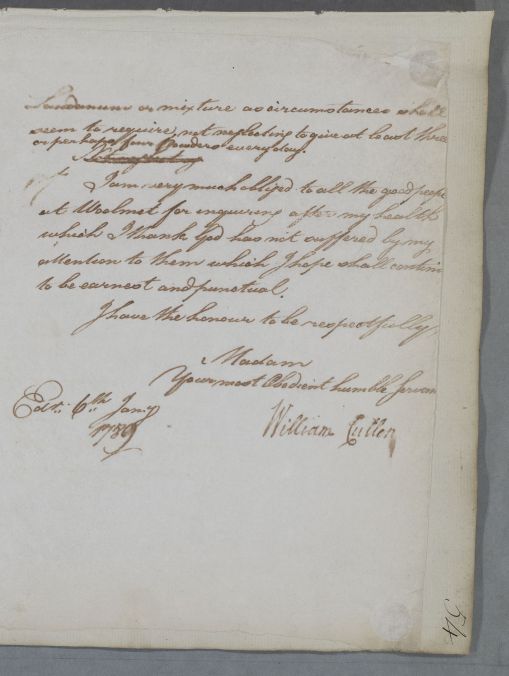 Laudanum or mixture as circumstances shall
seem to require, not neglecting to give at least three
or perhaps four Powders every day.
I am very much obliged to all the good people
at Woolmet for inquiring after my health
which I thank God has not suffered by my
attention to them which I hope shall continu
to be earnest and punctual.
I have the honour to be respectfully,
Madam
Your most Obedient humble Servan
Edr. 6th Jany
1789
William Cullen
54